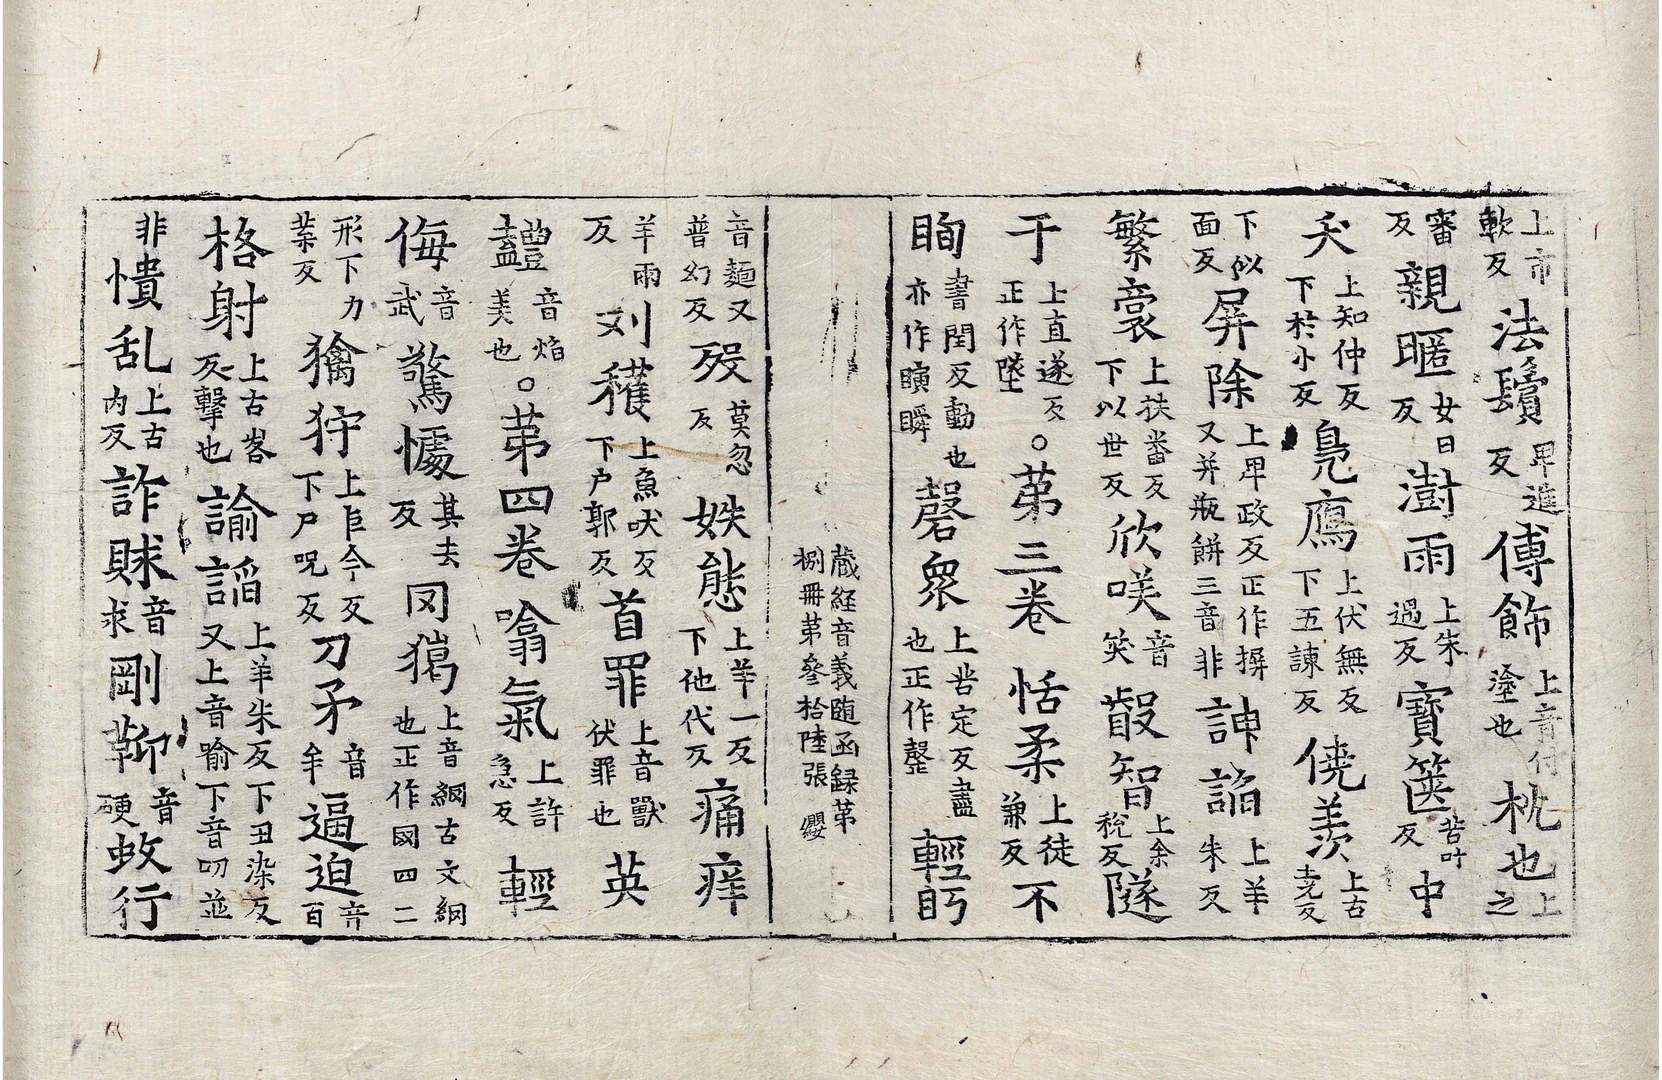 上市軟反法鬚卑進反傅飾上音付塗也枕也上之
審反親暱女日反澍雨上朱遇反寶箧苦叶反中
夭上知仲反下於小反鳧鴈上伏無反下五諫反僥羨上古尭反
下似面反屏除上卑政反正作摒又并瓶餅三音非諛諂上羊朱反
繁裔上扶番反下以世反欣咲音笑叡智上余稅反隧
于上直遂反正作墜○第三卷恬柔上徒兼反不
眴書閏反動也亦作瞚瞬磬衆上苦定反盡也正作罄輕眄
藏經音義随函録第捌冊第叄拾陸張 纓
音麵又普幻反歿莫忽反妷態上羊一反下他代反痛痒
羊雨反刈穫上魚吠反下户郭反首罪上音獸伏罪也英
豔音焰美也○第四卷噏氣上許急反輕
侮音武驚懅其去反罔上音網古文網也正作國四二
形下力葉反擒狩上巨今反下尸呪反刀矛音牟逼迫音百
格射上古峉反擊也諭謟上羊朱反下丑染反又上音喻下音叨並
非憒乱上古內反詐賕音求剛鞕音硬蚑行